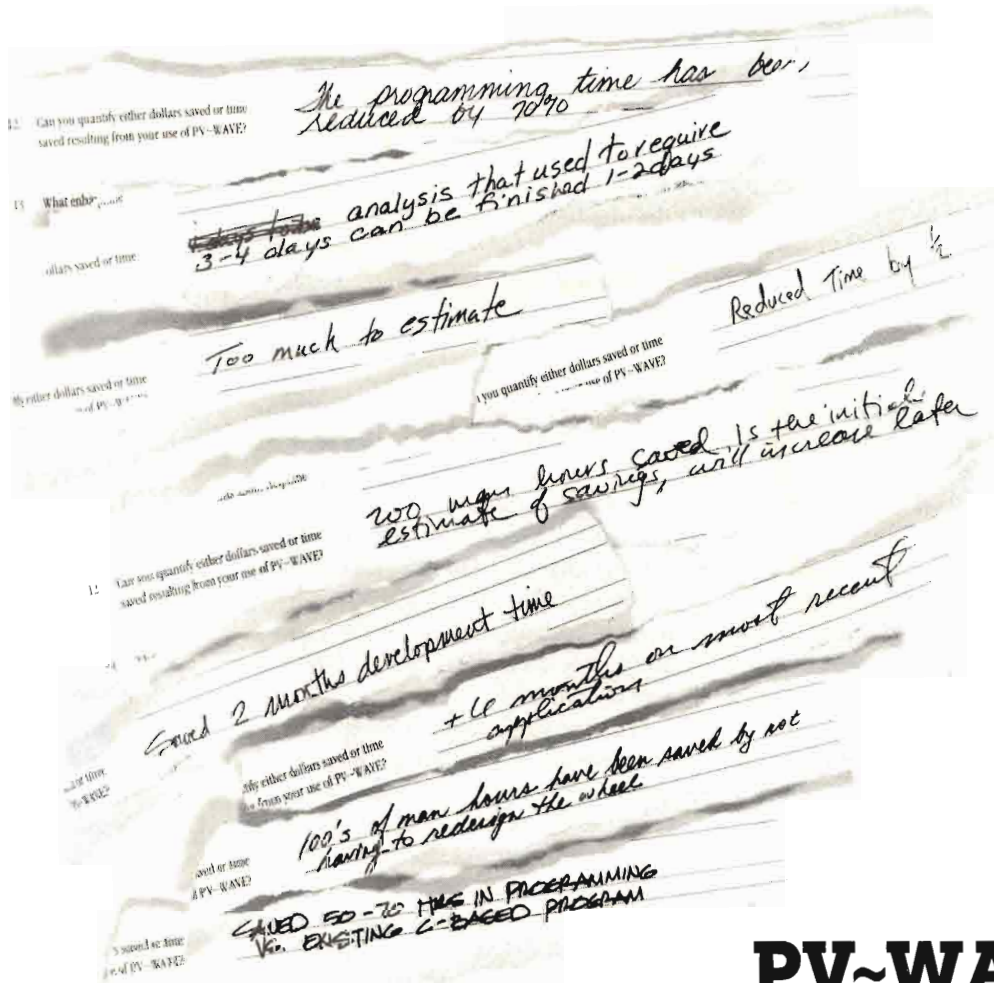 The programming time has been,
reduced by 70%
12. Can you quantify either dollars saved or time
saved resulting from your use of PV~WAVE?
13 What
analysis that used to require
3-4 days can be finished 1-2 days
ollars saved or time
Too much to estimate
Reduced Time by ½
ify either dollars saved or time
of PV~W
you quantify either dollars saved or time
use of PV~WAVE?
200 man hours saved is the initial
estimate of savings, will increase later
12 Can you quantify either dollars saved or time
saved resulting from your use of PV~WAVE?
Saved 2 months development time
+6 months on most recent
application
ify either dollars saved or time
from your use of PV~WAVE?
or time
V~WAVE?
100's of man hours have been saved by not
having to redesign the wheel
aved or time
PV~WAVE?
SAVED 50-70 HRS IN PROGRAMMING
VS. EXISTING C-BASED PROGRAM
s saved or time
e of PV~WAVE?
PV~WA